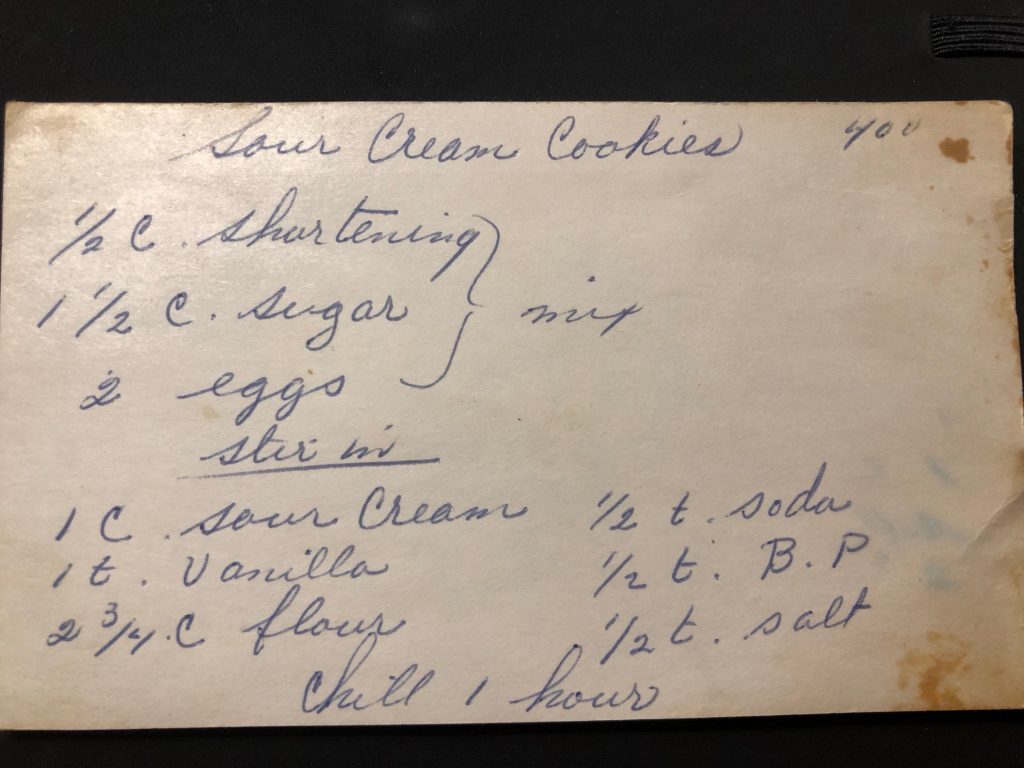 Sour Cream Cookies 400
1/2 C. shortening
1 1/2 C. sugar } mix
2 eggs
stir in
1 C. sour Cream 1/2 t. soda
1 t. Vanilla 1/2 t. B.P
2 3/4 C flour 1/2 t. salt
Chill 1 hour